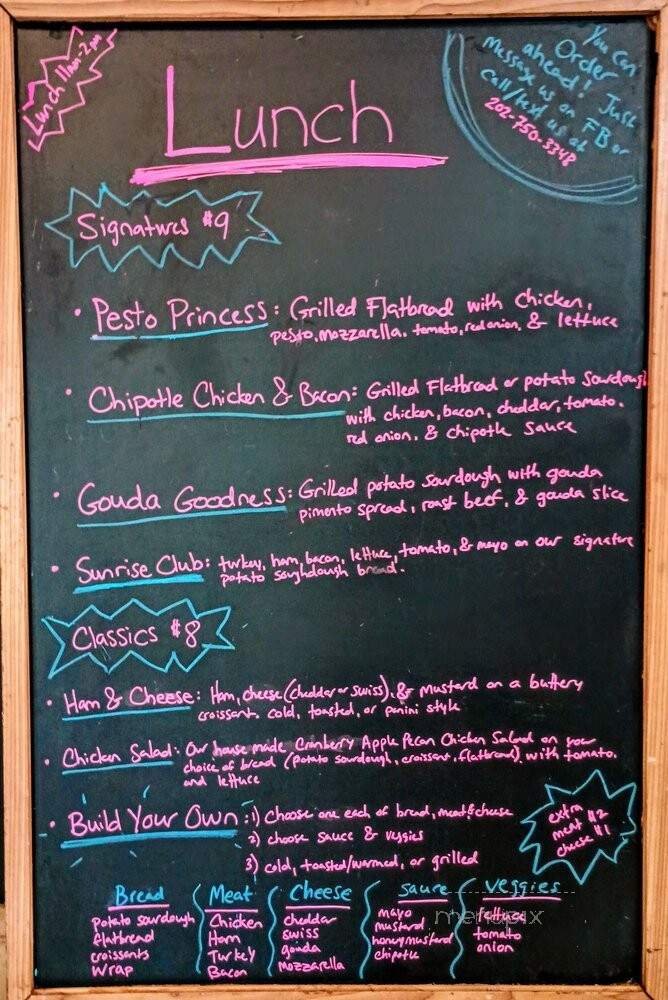 Lunch 11am-2pm
You Can
Order
ahead! Just
message us on FB or
Call/text us at
202-750-3348
Lunch
Signatures $9
• Pesto Princess: Grilled Flatbread with Chicken,
pesto, mozzarella. tomato, red onion, & lettuce
• Chipotle Chicken & Bacon: Grilled Flatbread or potato Sourdough
with chicken, bacon, cheddar, tomato.
red onion. & chipotle sauce
• Gouda Goodness: Grilled potato sourdough with gouda
pimento spread, roast beef, & gouda slice
• Sunrise Club: turkey, ham, bacon, lettuce, tomato, & mayo on our signature
potato soughdough bread.
Classics $8
• Ham & Cheese: Ham, cheese (cheddar or swiss), & mustard on a buttery
croissant. cold, toasted, or panini style
• Chicken Salad: Our house made Cranberry Apple Pecan Chicken Salad on your
choice of bread (potato sourdough, croissant, flatbread) with tomato.
and lettuce
• Build Your Own: 1) Choose one each of bread, meat & cheese
2) choose sauce & veggies
3) cold, toasted/warmed, or grilled
extra
meat $2
cheese $1
Bread Meat Cheese sauce veggies
potato sourdough Chicken cheddar mayo lettuce
flatbread Ham swiss mustard tomato
croissants Turkey gouda honey mustard onion
wrap Bacon mozzarella chipotle
menupix